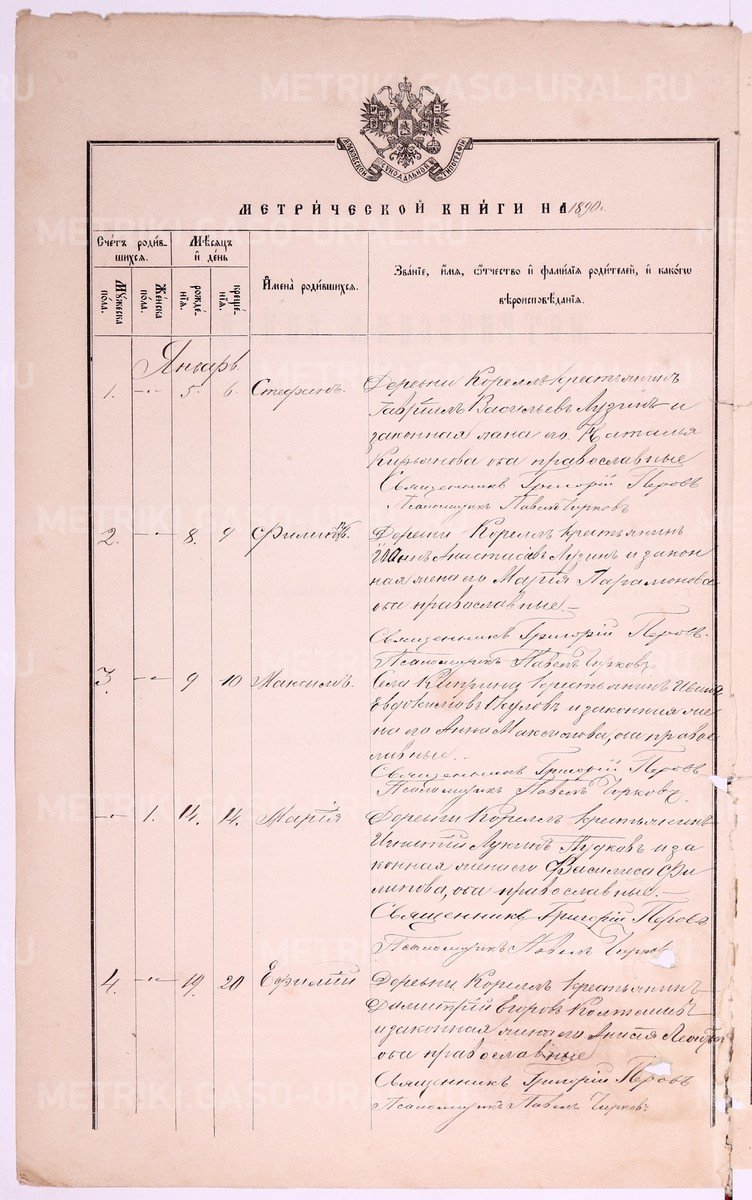 METRIKI.GASO-URAL.RU
МОСКОВСКОЙ СѴНОДАЛЬНОЙ ТИПОГРАФІИ
МЕТРИ́ЧЕСКОЙ КНИ́ГИ НА 1890.
Сче́тъ роди́вшихся.
Мѣ́сяцъ и҆ де́нь
И҆мена̀ роди́вшихся.
Зва́нїе, и҆́мѧ, ѻ҆́тчество и҆ фами́лїѧ роди́телей, и҆ како́гѡ вѣроисповѣ́данїѧ.
Мꙋ́жеска по́ла.
Же́нска по́ла.
рожде́нїѧ.
креще́нїѧ.
Январь
1. -"- 5. 6. Стефанъ.
Деревни Корелъ крестьянинъ
Гаврiилъ Васильевъ Лузинъ и
законная жена его Наталья
Кирьянова оба православные
Священникъ Григорій Перовъ
Псаломщикъ Павелъ Чирковъ
2. -"- 8. 9 Филиппъ.
Деревни Корелъ крестьянинъ
Лузинъ и закон
ная жена его Марія Парамонова
оба православные.-
Священникъ Григорій Перовъ.
Псаломщикъ Павелъ Чирковъ
3. -"- 9 10 Максимъ.
Села крестьянинъ Иванъ
Евдокимовъ и законная же
на его Анна Максимова, оба право
славные..
Священникъ Григорій Перовъ
Псаломщикъ Павелъ Чирковъ.
-"- 1. 14. 14. Марія
Деревни Корелъ крестьянинъ
Игнатій Лукинъ и за
конная жена его Василиса Фи
липова, оба православные.-
Священникъ Григорій Перовъ
Псаломщикъ Павелъ Чирков
4. -"- 19. 20 Ефимій
Деревни Корелъ крестьянинъ
Димитрій Егоровъ
и законная жена его Анисія
оба православные
Священникъ Григорій Перовъ
Псаломщикъ Павелъ Чирковъ